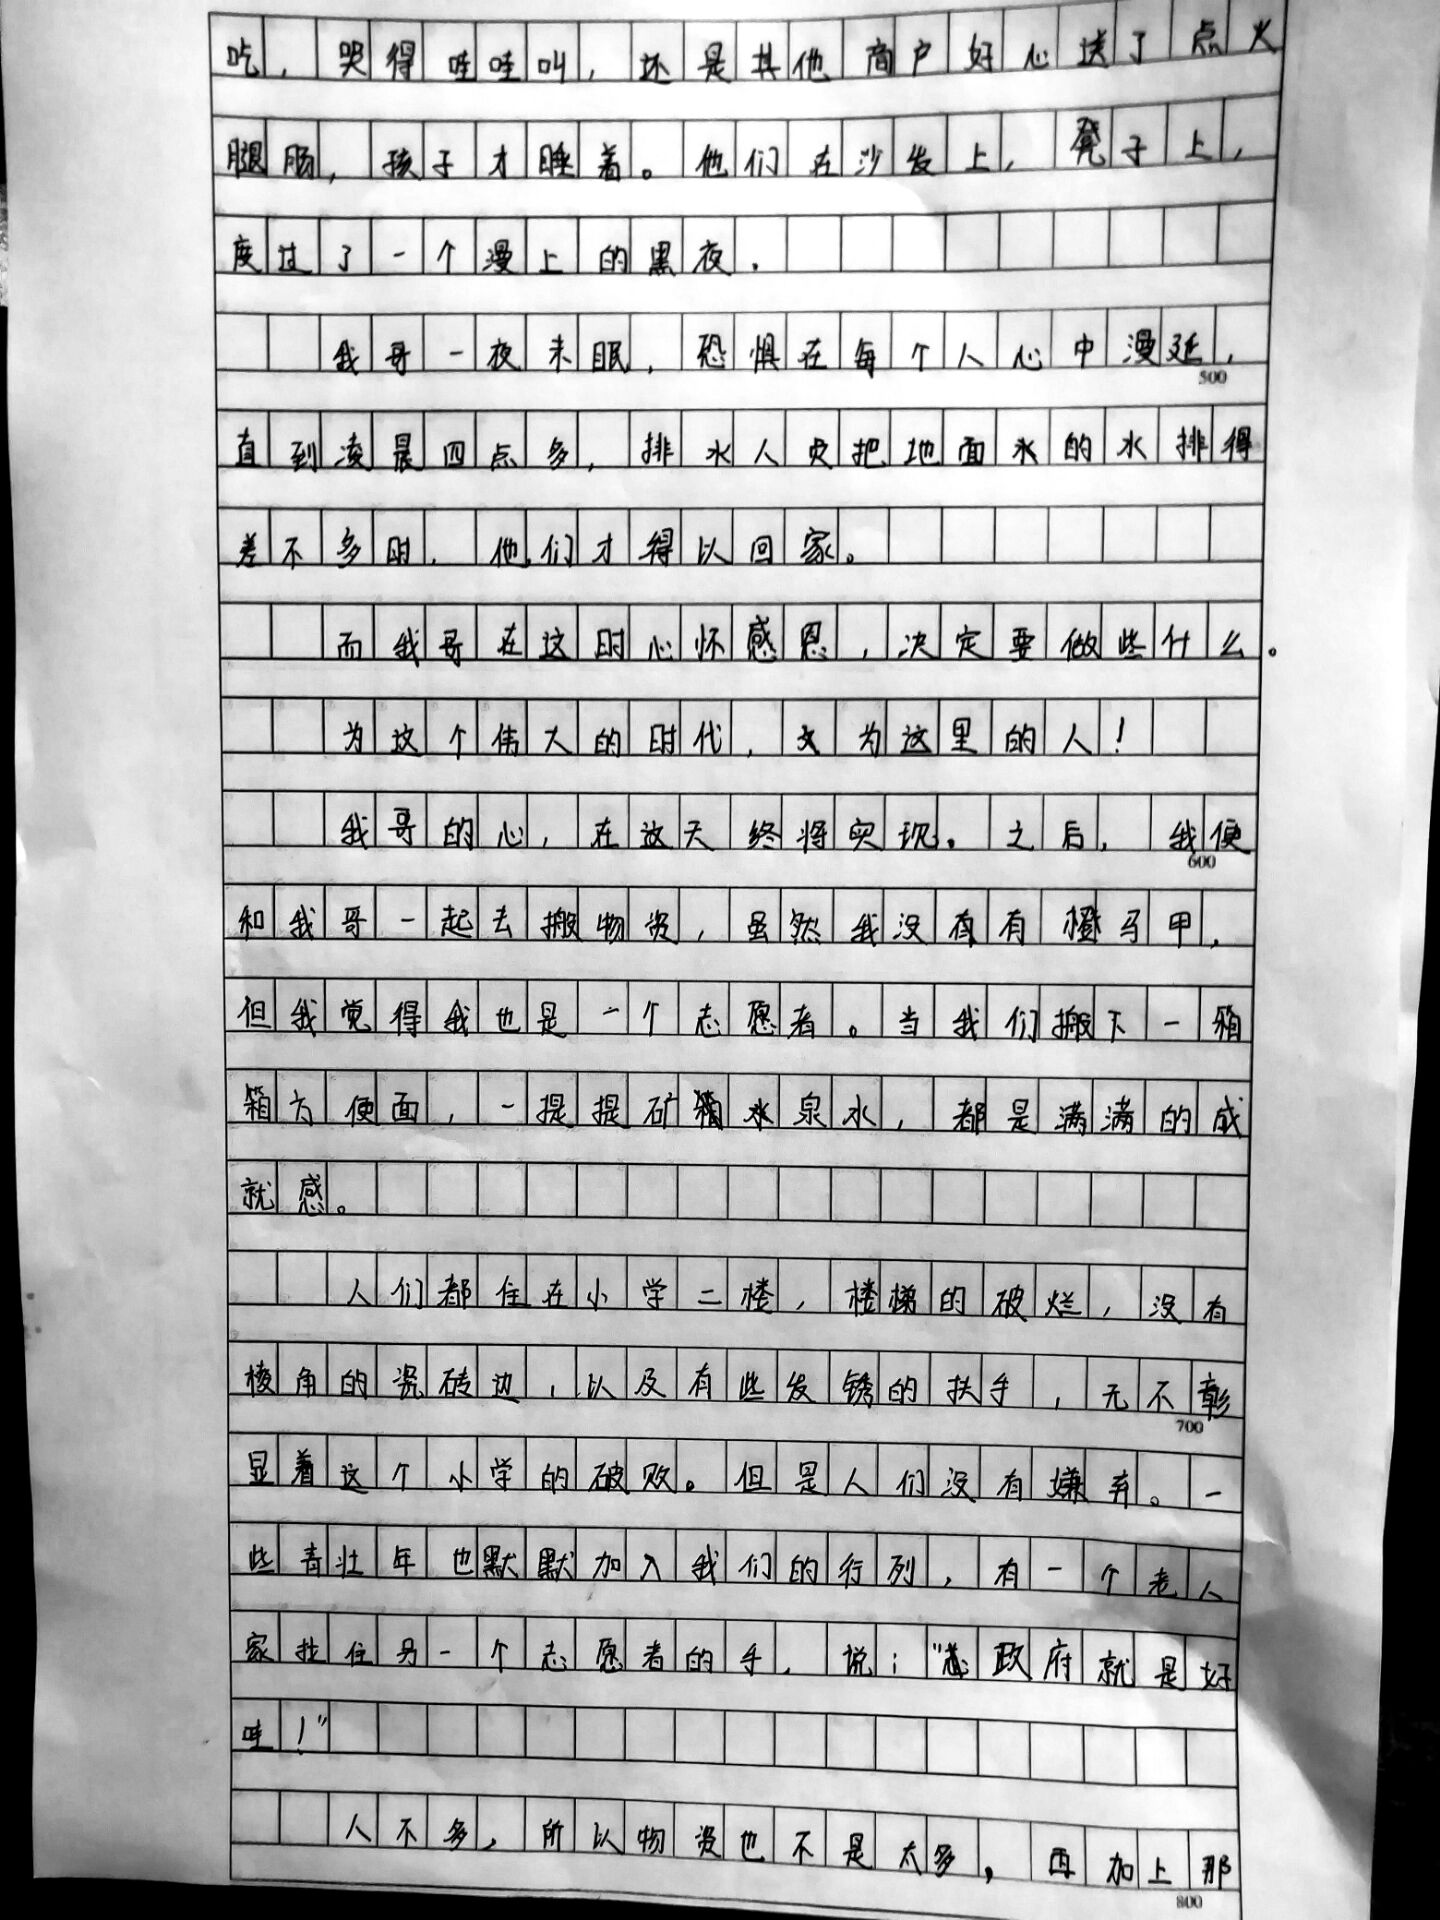 吃，哭得哇哇叫，还是其他商户好心送了点火
腿肠，孩子才睡着。他们在沙发上，凳子上，
度过了一个漫上的黑夜.
我哥一夜未眠，恐惧在每个人心中漫延，
500
直到凌晨四点多，排水人员把地面水的水排得
差不多时，他们才得以回家。
而我哥在这时心怀感恩，决定要做些什么。
为这个伟大的时代，为这里的人！
我哥的心，在这天终将实现。之后，我便
600
和我哥一起去搬物资，虽然我没有有橙马甲，
但我觉得我也是一个志愿者。当我们搬下一箱
箱方便面，一提提矿泉水，都是满满的成
就感。
人们都住在小学二楼，楼梯的破烂，没有
棱角的瓷砖边，以及有些发锈的扶手，无不彰
700
显着这个小学的破败。但是人们没有嫌弃。一
些青壮年也默默加入我们的行列，有一个老人
家拉住另一个志愿者的手，说：“政府就是好
哇！”
人不多，所以物资也不是太多，再加上那
800